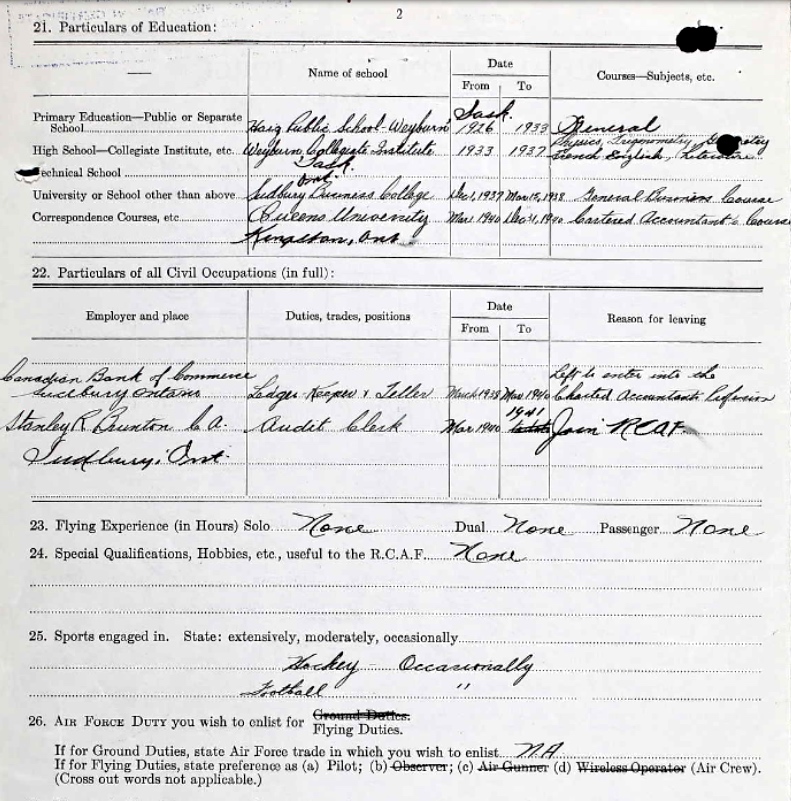 2
21. Particulars of Education:
Name of school
Date
From To
Courses—Subjects, etc.
Sask.
Primary Education—Public or Separate
School Haig Public School - Weyburn 1926 1933 General
High School—Collegiate Institute, etc. Weyburn Collegiate Institute 1933 1937 Physics, Trigonometry, Geometry
Sask. French English, Literature
Technical School
Ont.
University or School other than above Sudbury Business College Dec 1, 1937 Mar 15, 1938 General Business Course
Correspondence Courses, etc. Queens University Mar 1940 Dec 31, 1940 Cartered Accountant's Course
Kingston, Ont.
22. Particulars of all Civil Occupations (in full):
Employer and place
Duties, trades, positions
Date
From To
Reason for leaving
Canadian Bank of Commerce Left to enter into the
Sudbury Ontario Ledger-Keeper & Teller March 1938 Mar 1940 Charted Accountants Profession
1941
Stanley R. Brunton C.A. Audit Clerk Mar 1940 Join RCAF
Sudbury, Ont.
23. Flying Experience (in Hours) Solo None Dual None Passenger None
24. Special Qualifications, Hobbies, etc., useful to the R.C.A.F. None
25. Sports engaged in. State: extensively, moderately, occasionally
Hockey - Occasionally
Football "
26. AIR FORCE DUTY you wish to enlist for Ground Duties.
Flying Duties.
If for Ground Duties, state Air Force trade in which you wish to enlist N.A.
If for Flying Duties, state preference as (a) Pilot; (b) Observer; (c) Air Gunner (d) Wireless Operator (Air Crew).
(Cross out words not applicable.)